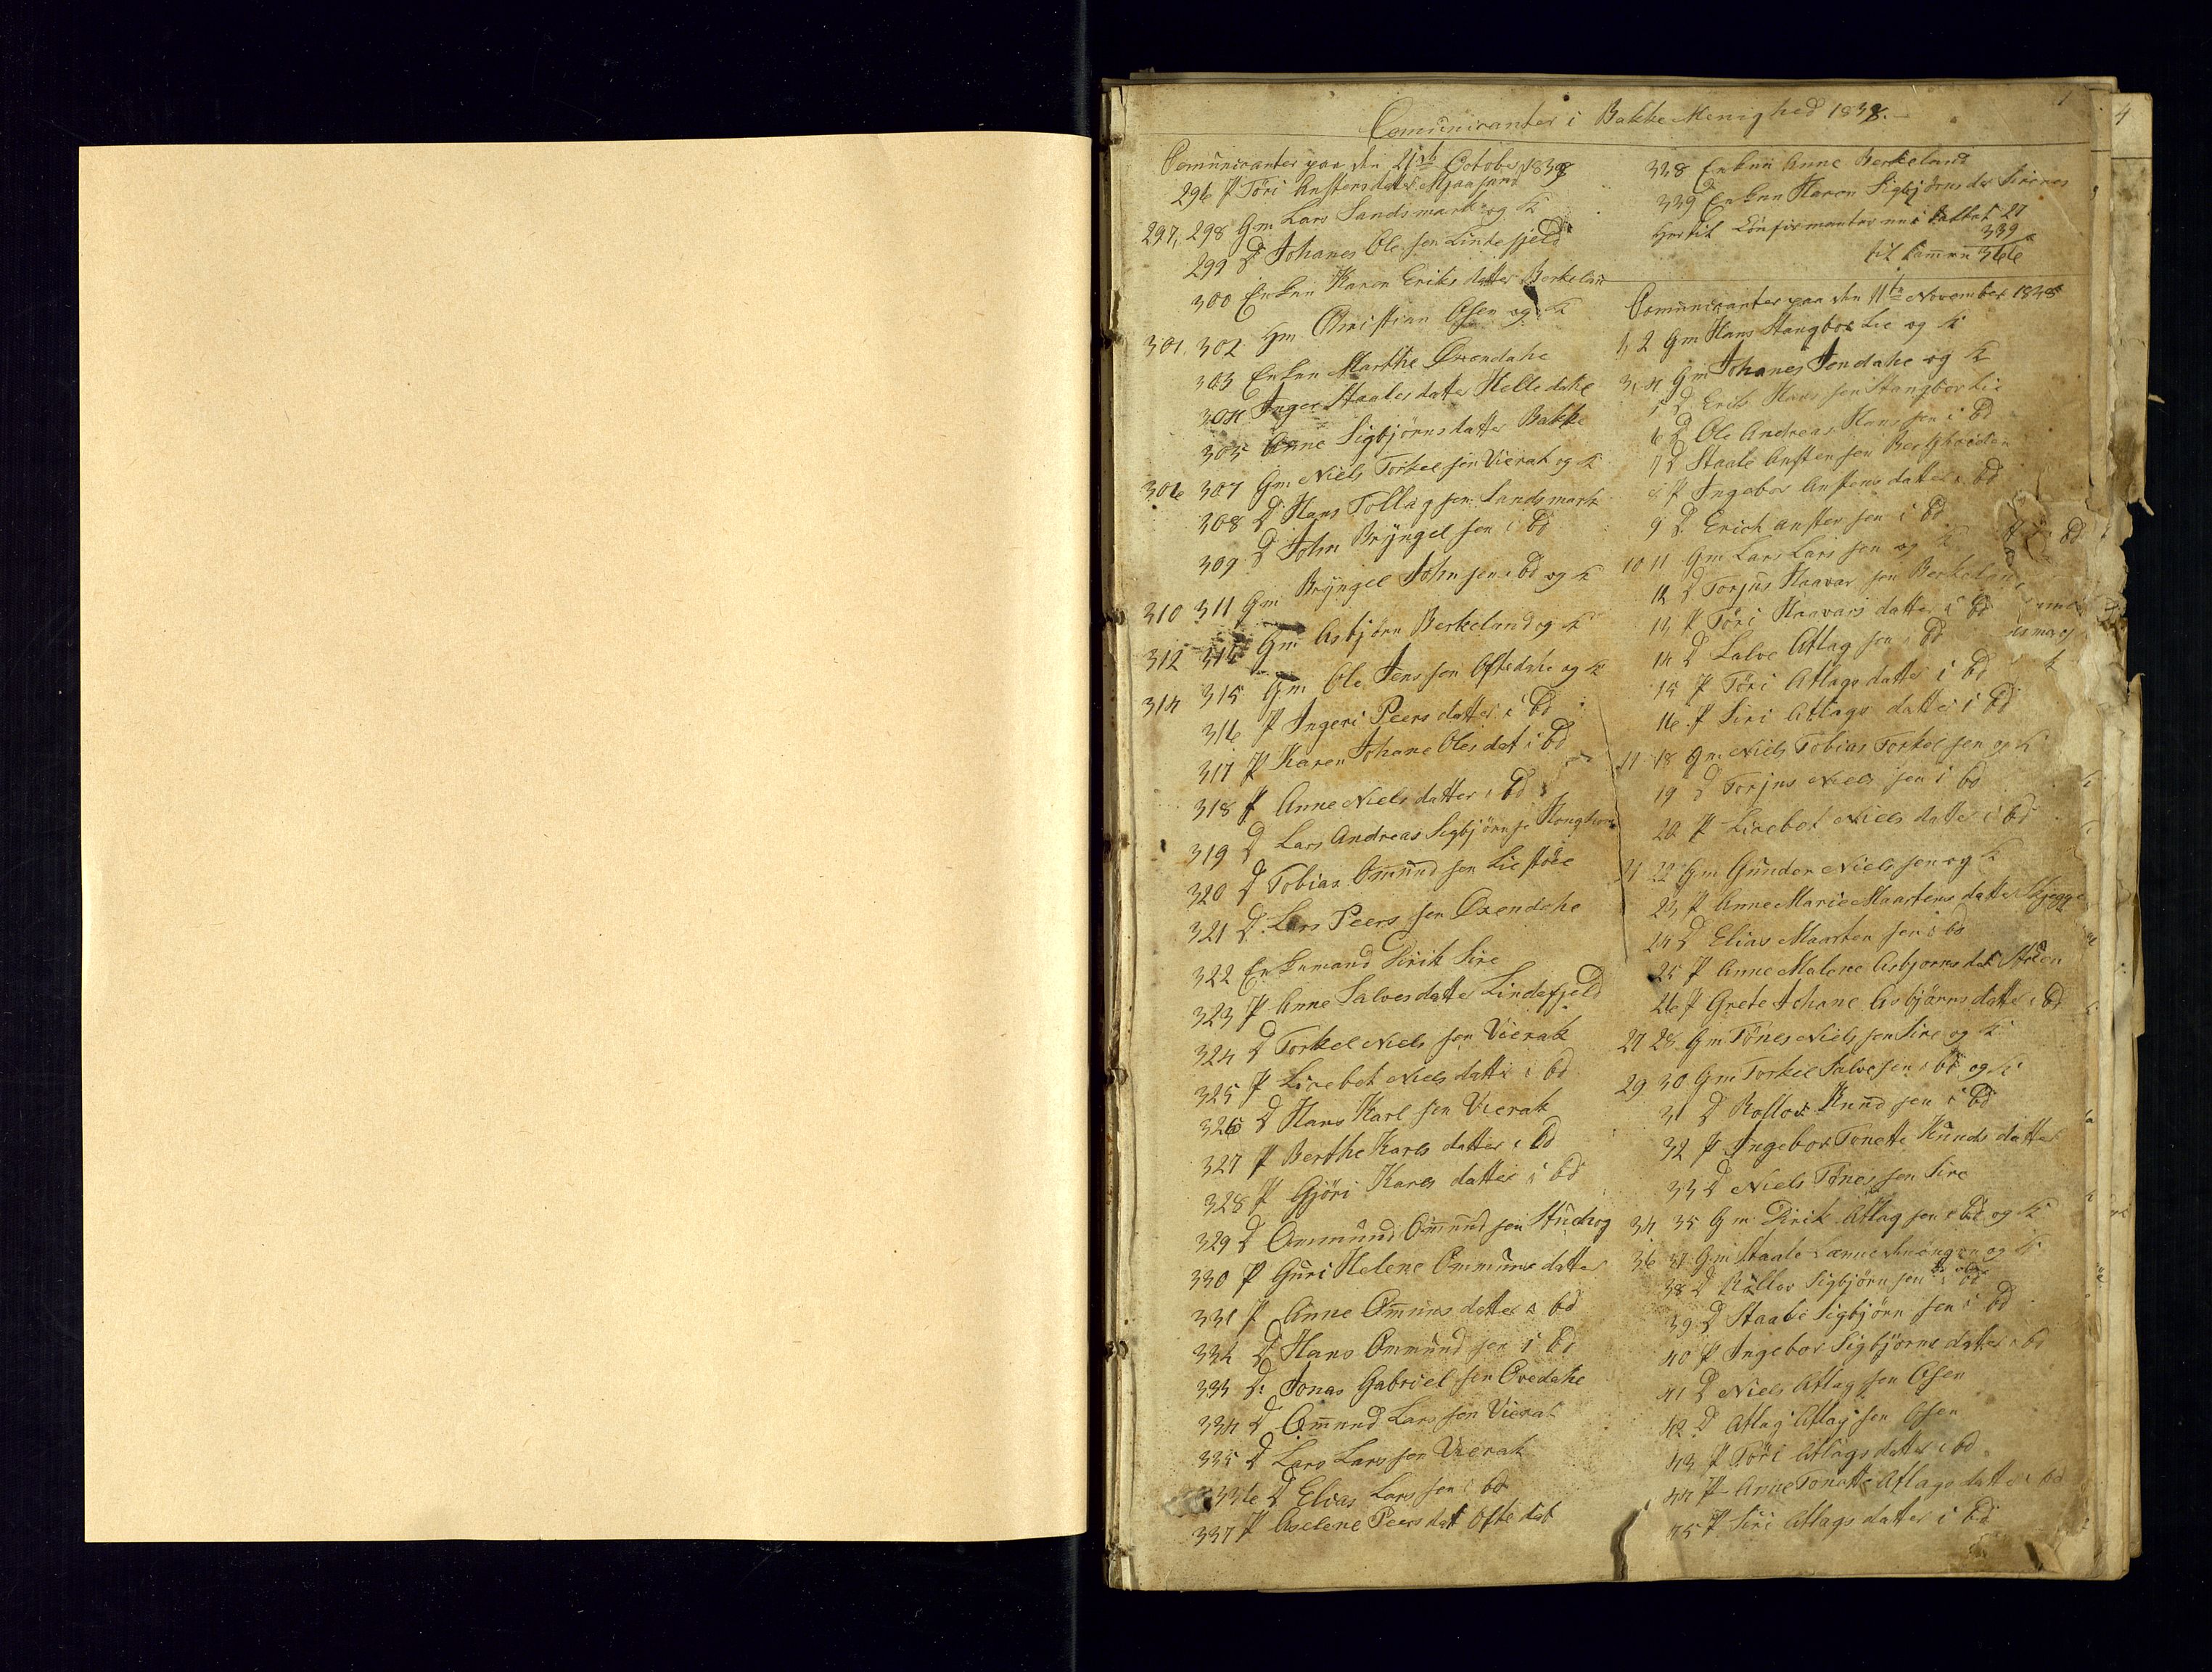 1
Comunicanter i Bakke Menighed 1838.
Comunicanter paa den 21de October 1838
296 P Töri Anstensdatter
297, 298 Gm Lars Sandsmark og K
299 D Johanes Olesen Lindefjeld
300 Enken Karen Eriks datter Berkeland
301, 302 Gm Christian Osen og K
303 Enken Marthe Oxendahe
304 Inger Staales datter Helledahl
305 Anne Sigbjörns datter Bakke
306 307 Gm Niels Torkelsen Vierak og K
308 D Hans Tollagsen Sandsmark
309 D John Bryngelsen i bd
310 311 Gm Bryngel Johnsen i bd og K
312 313 Gm Asbjörn Berkeland og K
314 315 Gm Ole Jenssen Oftedahe og K
316 P Ingeri Peersdatter i bd
317 P Karen Johane Olesdat i bd
318 P Anne Nielsdatter i bd
319 D Lars Andreas Sigbjörnse
320 D Tobias Omundsen Liestöle
321 D Lars Peersen Oxendahe
322 Enkemand Dirik Sire
323 P Anne Salvesdatter Lindefjeld
324 D Torkel Nielssen Vierak
325 P Lisebet Nielsdatter i bd
326 D Hans Karlsen Vierak
327 P Berthe Karlsdatter i bd
328 P Gjöri Karlsdatter i bd
329 D Ommund Omundsen
330 P Guri Helene Ommunsdatter
331 P Anne Omunsdatter i bd
332 D Hans Ommundsen i bd
333 D: Jonas Gabrielsen Ovedahe
334 D Omund Larssen Vierak
335 D Lars Larssen Vierak
336 D Elias Larssen i bd
337 P Aselene Peersdat Oftedal
338 Enken Anne Berkeland
339 Enken Karen Sigbjörnsdr Sirenes
Hertil Konfirmanterne i tallet 27
339
tilsamen 366
Comunicanter paa den 11te November 1838
1, 2 Gm Hans Stangborlie og K
3, 4 Gm Johanes Jondahe og K
5 D Erik Hanssen Stangborlie
6 D Ole Andreas Hanssen i bd
7 D Staale Anstensen
8 P Ingebor Anstensdatter i bd
9 D Erich Anstensen i bd
10 11 Gm Lars Larssen og K
12 D Torjus Haavarsen Berkeland
13 P Töri Haavarsdatter i bd
14 D Salve Atlagsen i bd
15 P Töri Atlagsdatter i bd
16 P Siri Atlagsdatter i bd
17 18 Gm Niels Tobias Torkelsen og K
19 D Torjus Nielssen i bd
20 P Lisebet Nielsdatter i bd
21 22 Gm Gunder Nielssen og K
23 P Anne Marie Maartensdatter
24 D Elias Maartensen i bd
25 P Anne Malene Asbjornsdat Stölen
26 P Grete Johane Asbjörnsdatter i bd
27 28 Gm Tönes Nielssen Sire og K
29 30 Gm Torkel Salvesen i bd og K
31 D Rollov Knudsen i bd
32 P Ingebor Tonette Knudsdatter
33 D Niels Tönessen Sire
34 35 Gm Dirik Atlagsen i bd og K
36 37 Gm Staale og K
38 D Rollov Sigbjörnsen i bd
39 D Staale Sigbjörnsen i bd
40 P Ingebor Sigbjörnsdatter i bd
41 D Niels Atlagsen Osen
42 D Atlag Atlagsen Osen
43 P Töri Atlagsdatter i bd
44 P Anne Tonette Atlagsdatter i bd
45 P Siri Atlagsdatter i bd
4